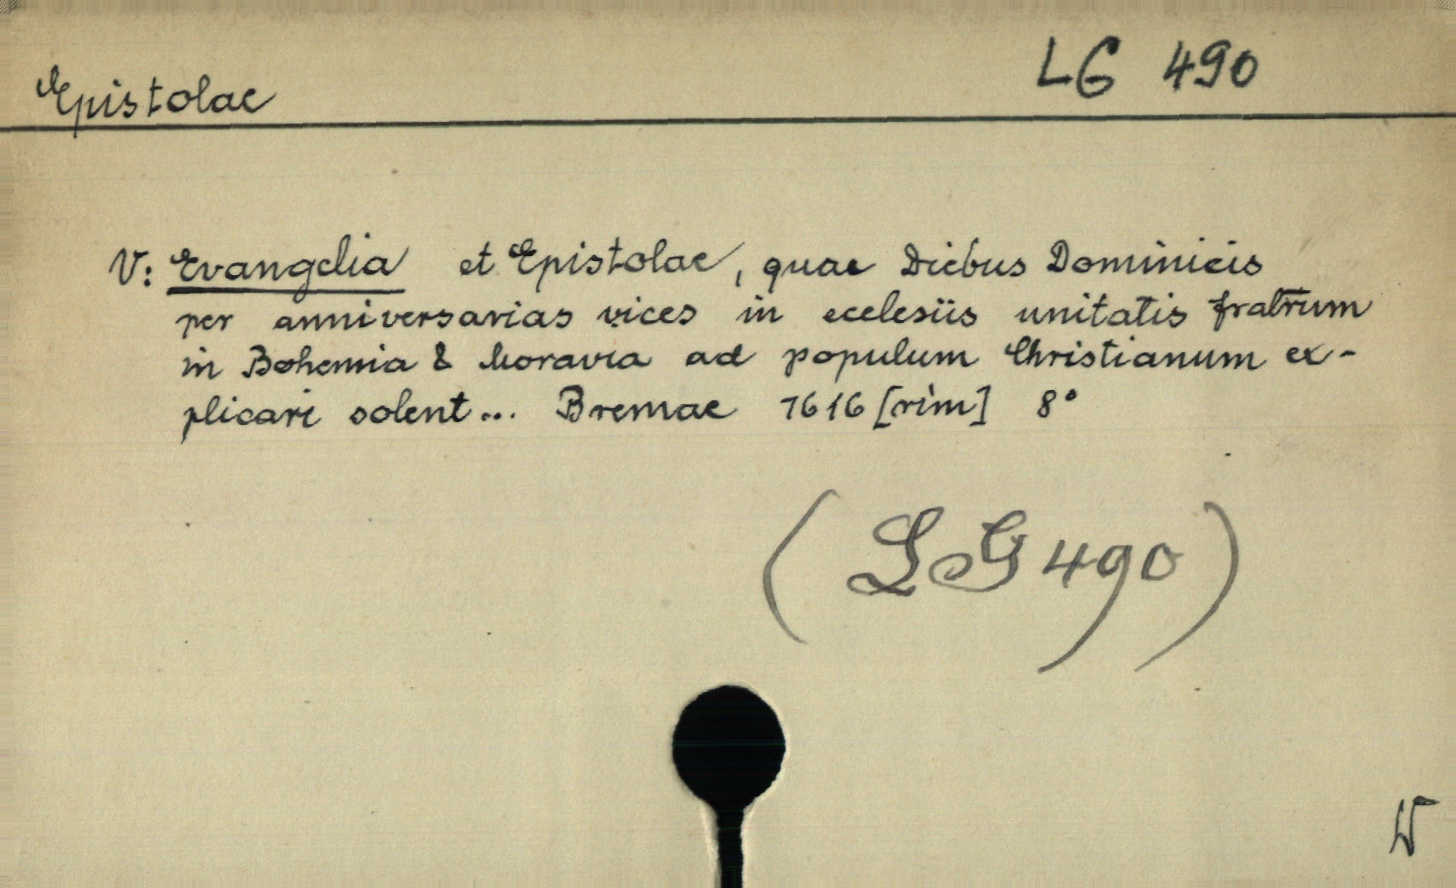 Epistolae
LG 490
V: Evangelia et Epistolae, quae Diebus Dominicis
per anniversarias vices in ecclesiis unitatis fratrum
in Bohemia & Moravia ad populum Christianum ex-
plicari solent... Bremae 1616 [rim] 8°
(LG 490)
W